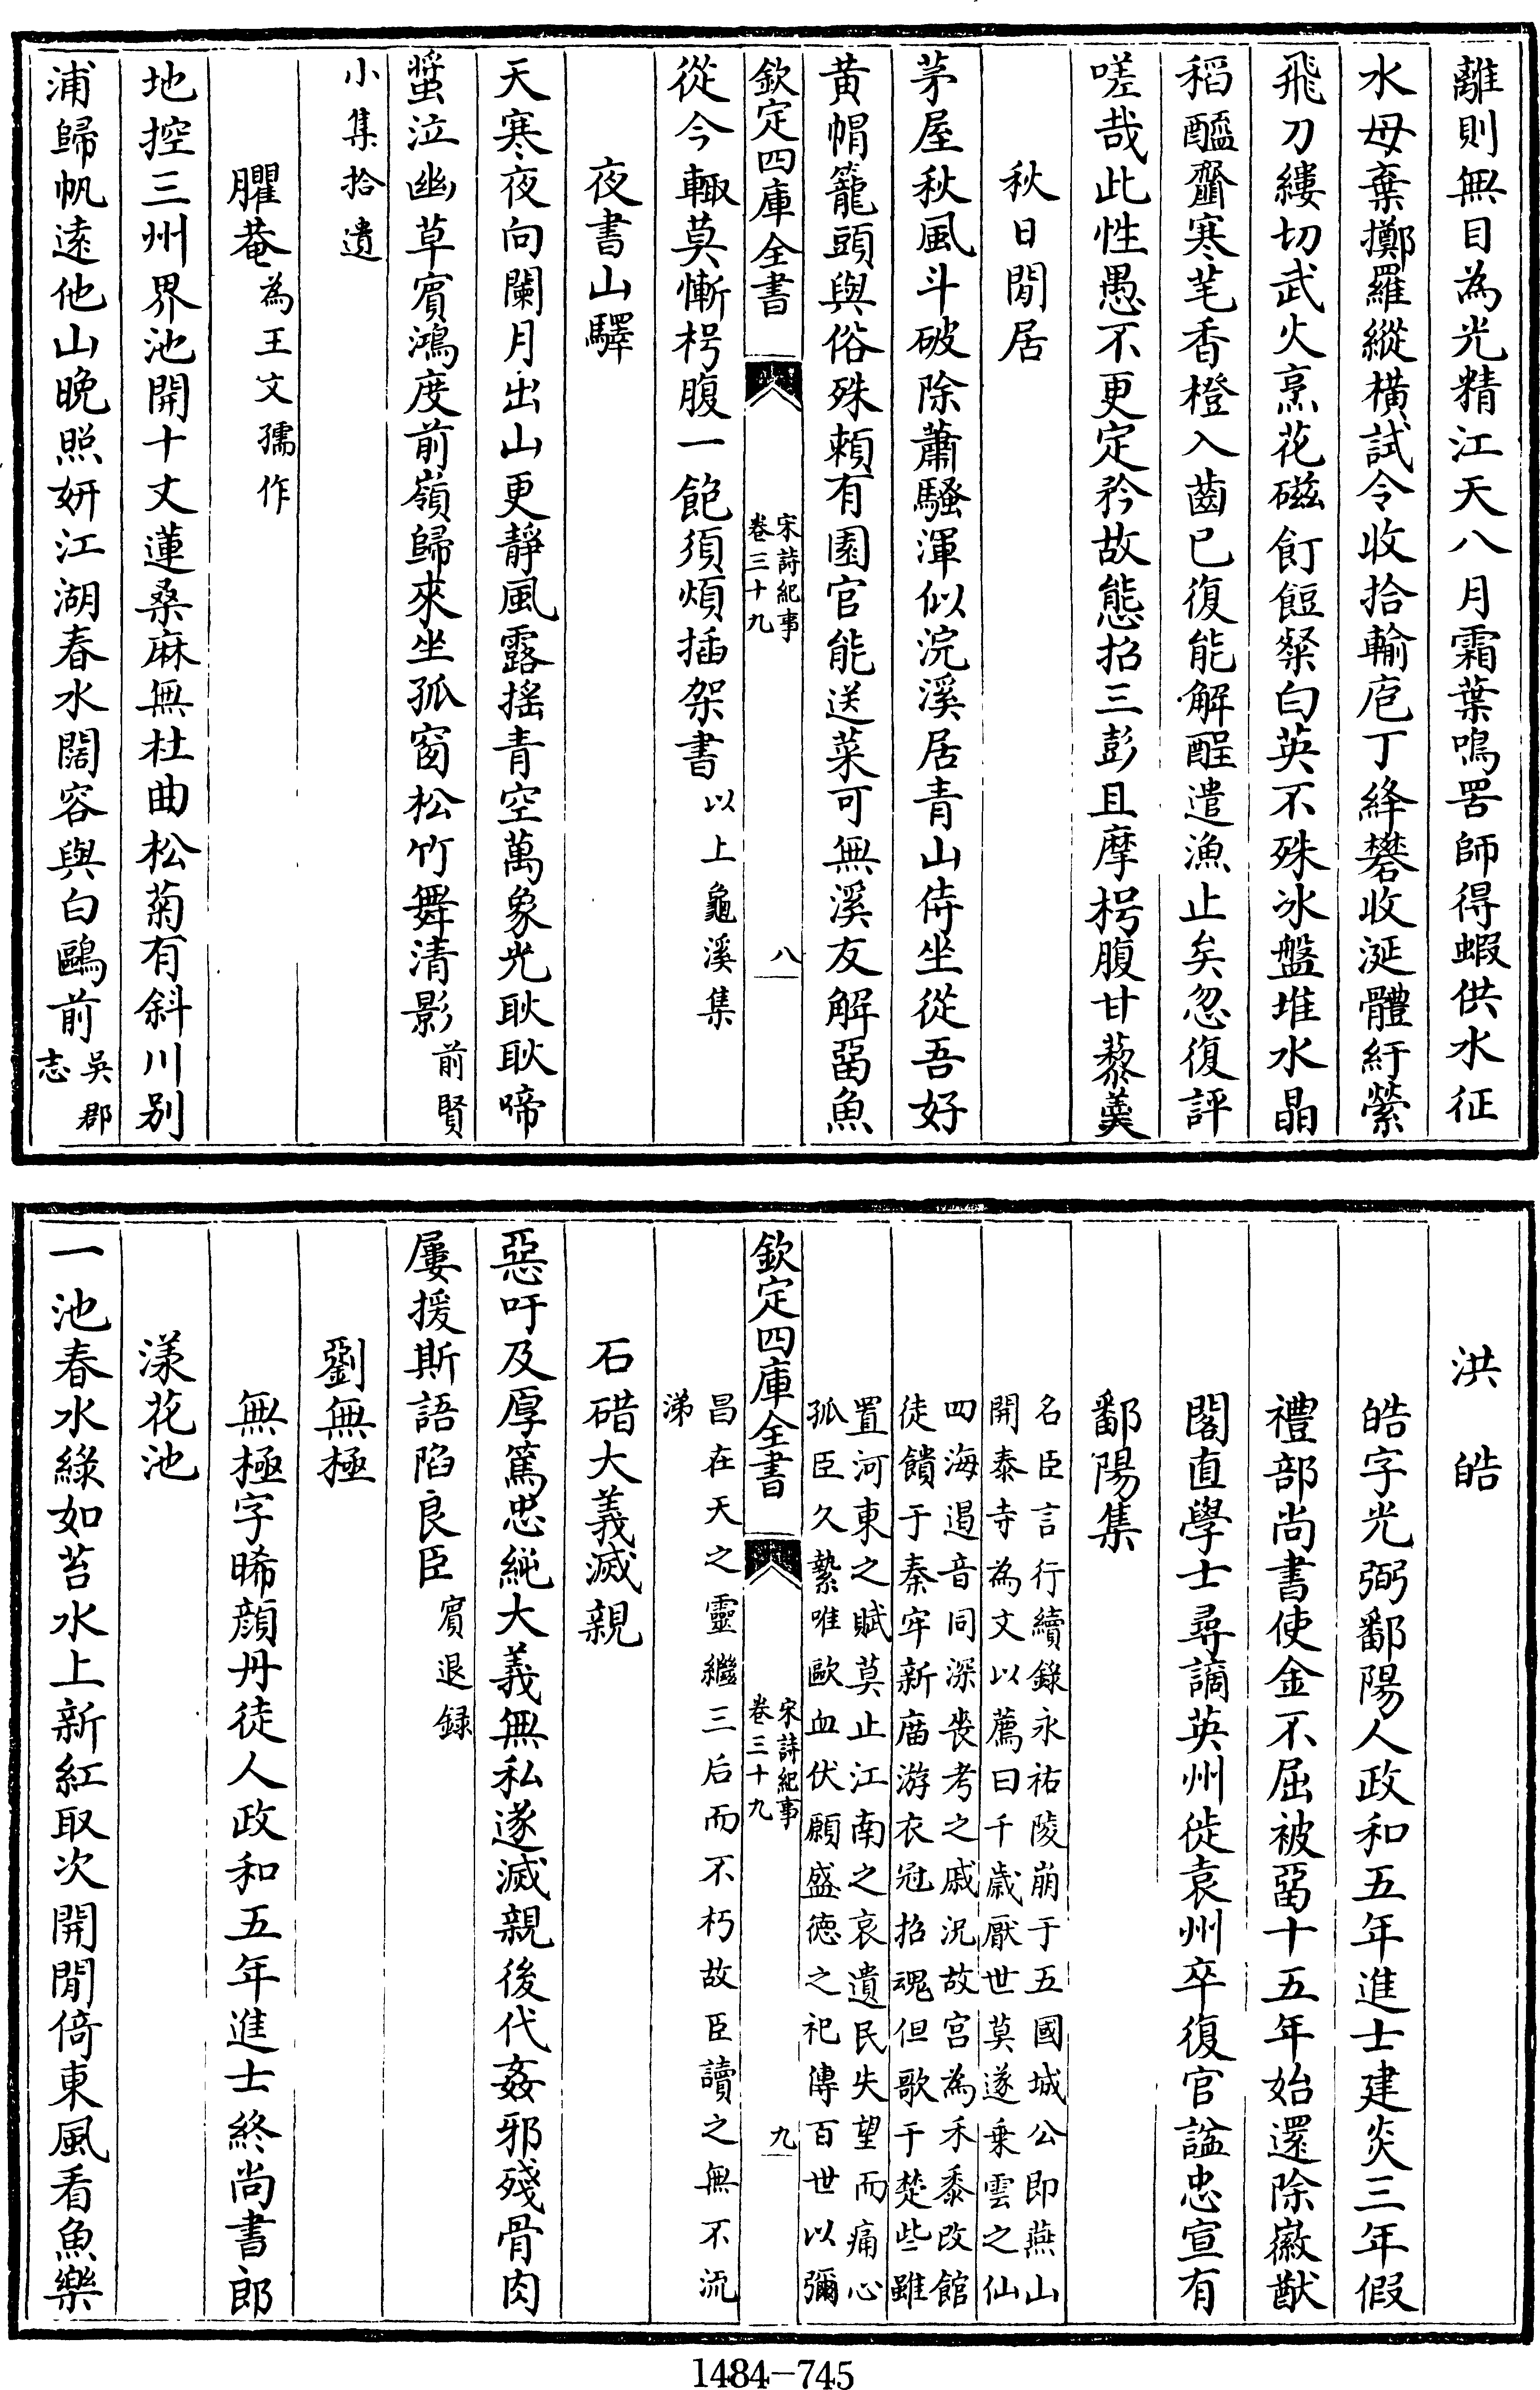 離則無目為光精江天八月霜葉鳴罟師得蝦供水征
水母棄擲羅縱橫試令收拾輸庖丁絳礬收涎體紆縈
飛刀縷切武火烹花磁飣餖粲白英不殊冰盤堆水晶
稻醯齏寒芼香橙入齒已復能解酲遣漁止矣忽復評
嗟哉此性愚不更定矜故態招三彭且摩枵腹甘藜羮
秋日閒居
茅屋秋風斗破除蕭騷渾似浣溪居青山侍坐從吾好
黄帽籠頭與俗殊頼有園官能送菜可無溪友解畱魚
欽定四庫全書
宋詩紀事
卷三十九
八
從今輙莫慚枵腹一飽須煩插架書以上龜溪集
夜書山驛
天寒夜向闌月出山更靜風露揺青空萬象光耿耿啼
螿泣幽草賓鴻度前嶺歸來坐孤窗松竹舞清影前賢
小集拾遺
臞菴為王文孺作
地控三州界池開十丈蓮桑麻無杜曲松菊有斜川别
浦歸帆逺他山晩照妍江湖春水闊容與白鷗前吳郡
志
洪皓
皓字光弼鄱陽人政和五年進士建炎三年假
禮部尚書使金不屈被畱十五年始還除徽猷
閣直學士尋謫英州徙袁州卒復官諡忠宣有
鄱陽集
名臣言行續錄永祐陵崩于五國城公即燕山
開泰寺為文以薦曰千歲厭世莫遂乗雲之仙
四海遏音同深喪考之戚況故宫為禾黍改館
徒饋于秦牢新廟游衣冠招魂但歌于楚些雖
置河東之賦莫止江南之哀遺民失望而痛心
孤臣久縶唯歐血伏願盛徳之祀傳百世以彌
欽定四庫全書
宋詩紀事
卷三十九
九
昌在天之靈繼三后而不朽故臣讀之無不流
涕
石碏大義滅親
惡吁及厚篤忠純大義無私遂滅親後代姦邪殘骨肉
屢援斯語陷良臣賓退録
劉無極
無極字晞顔丹徒人政和五年進士終尚書郎
漾花池
一池春水緑如苔水上新紅取次開閒倚東風看魚樂
1484-745